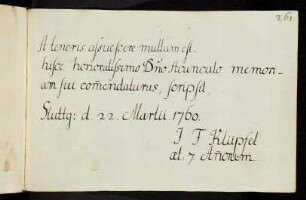 261
A teneris assuescere multum est.
hisce honoratissimo Dño Avunculo memori-
am sui comendaturus, scripsit,
Stuttg: d. 22. Martii 1760.
I F Klüpfel
æt. 7 Añorum